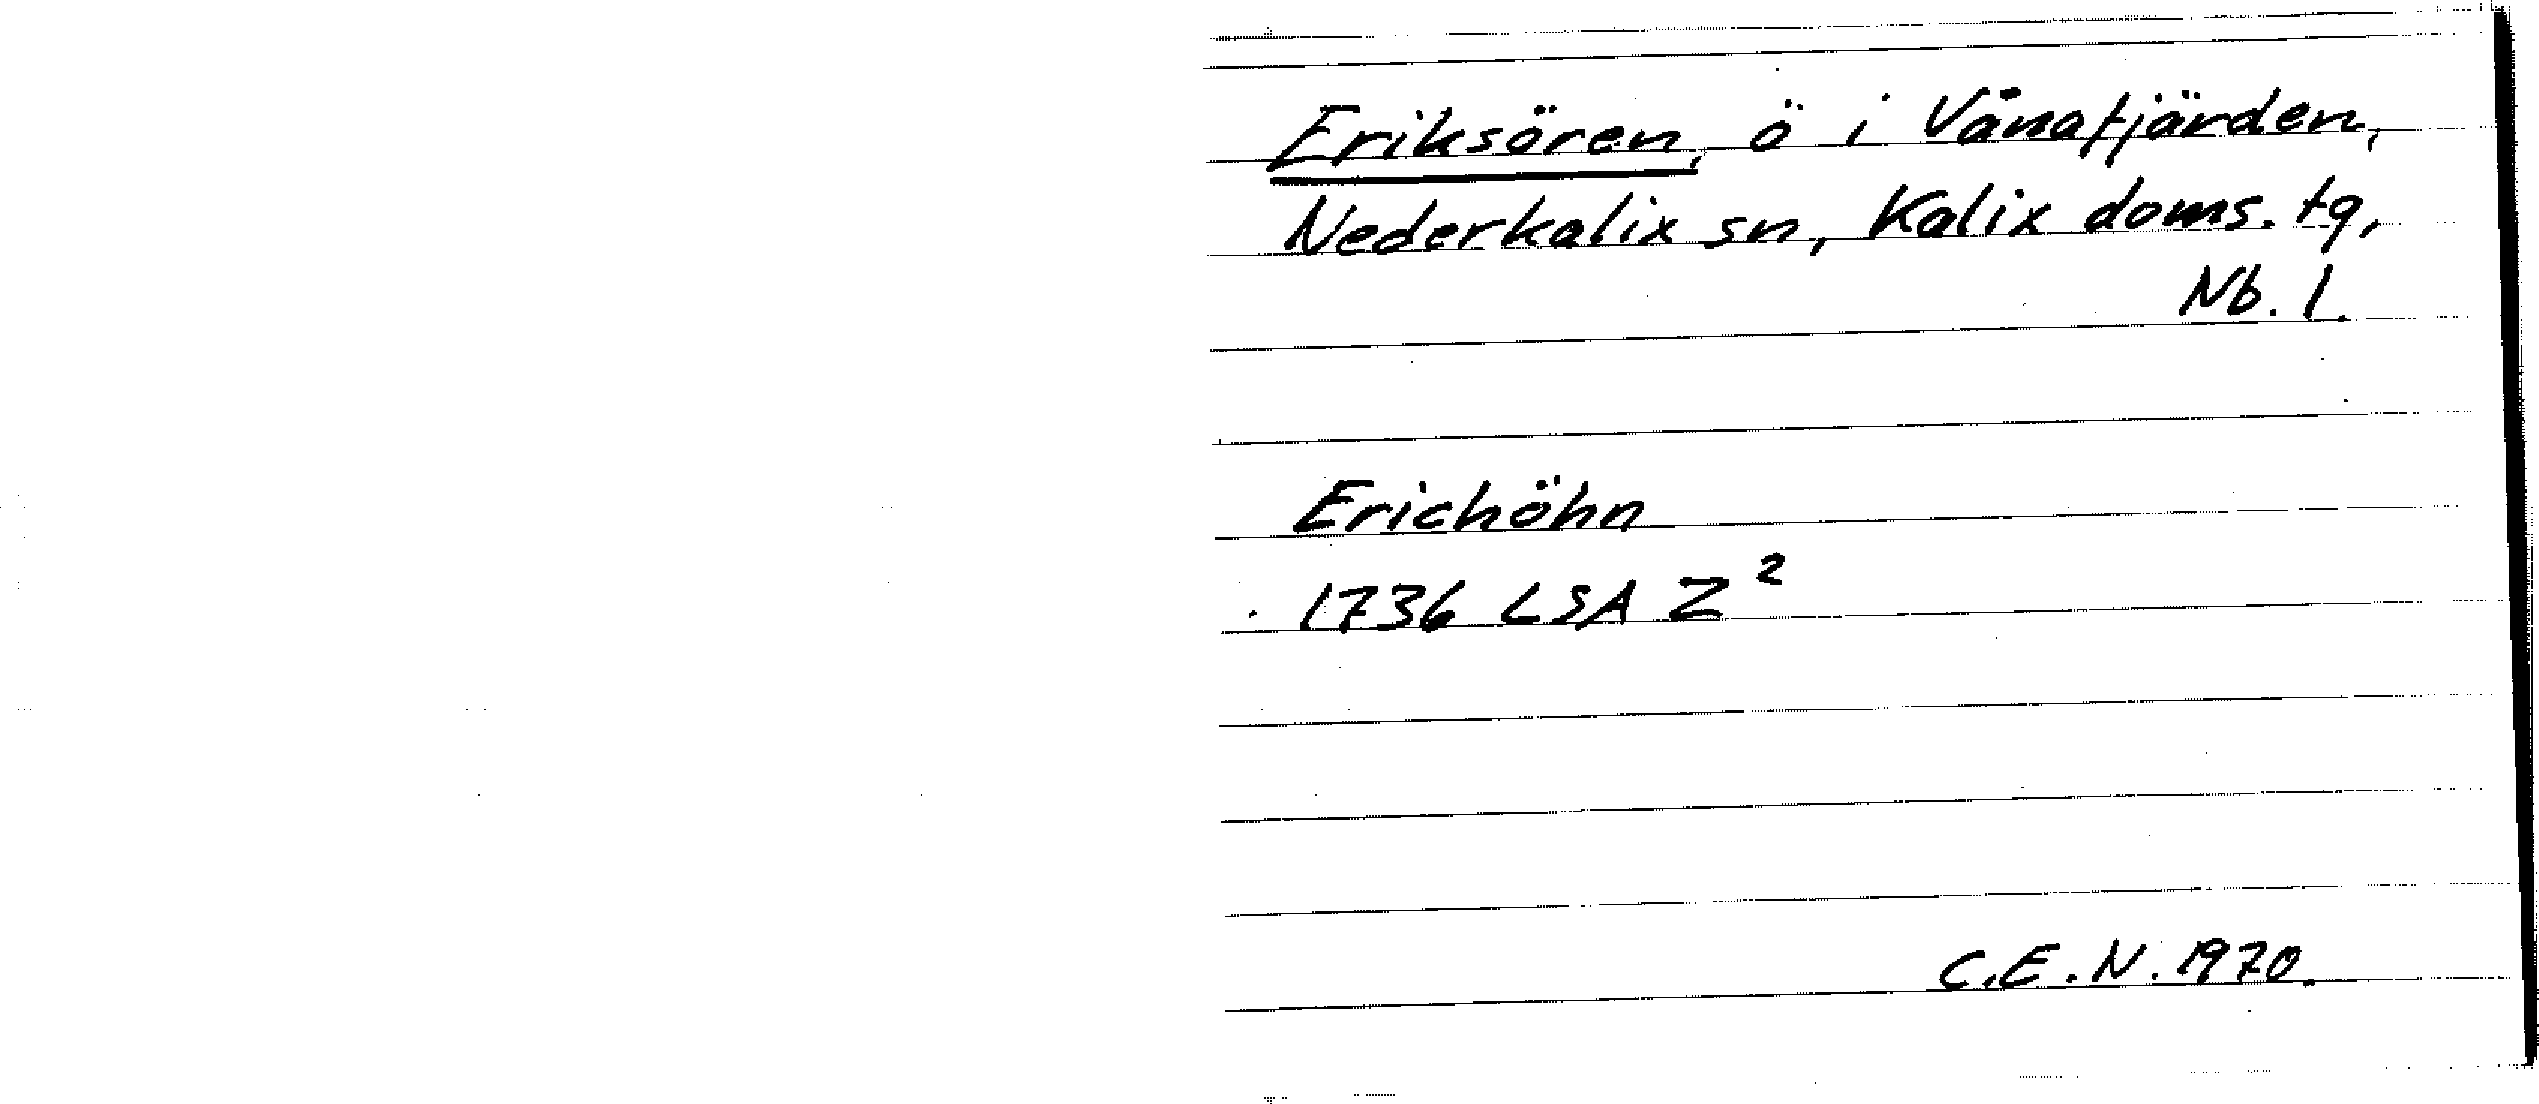 Eriksören, ö i Vånafjärden,
Nederkalix sn, Kalix doms. tg,
Nb. l.
Erichöhn
1736 LSA Z²
C.E.N. 1970.